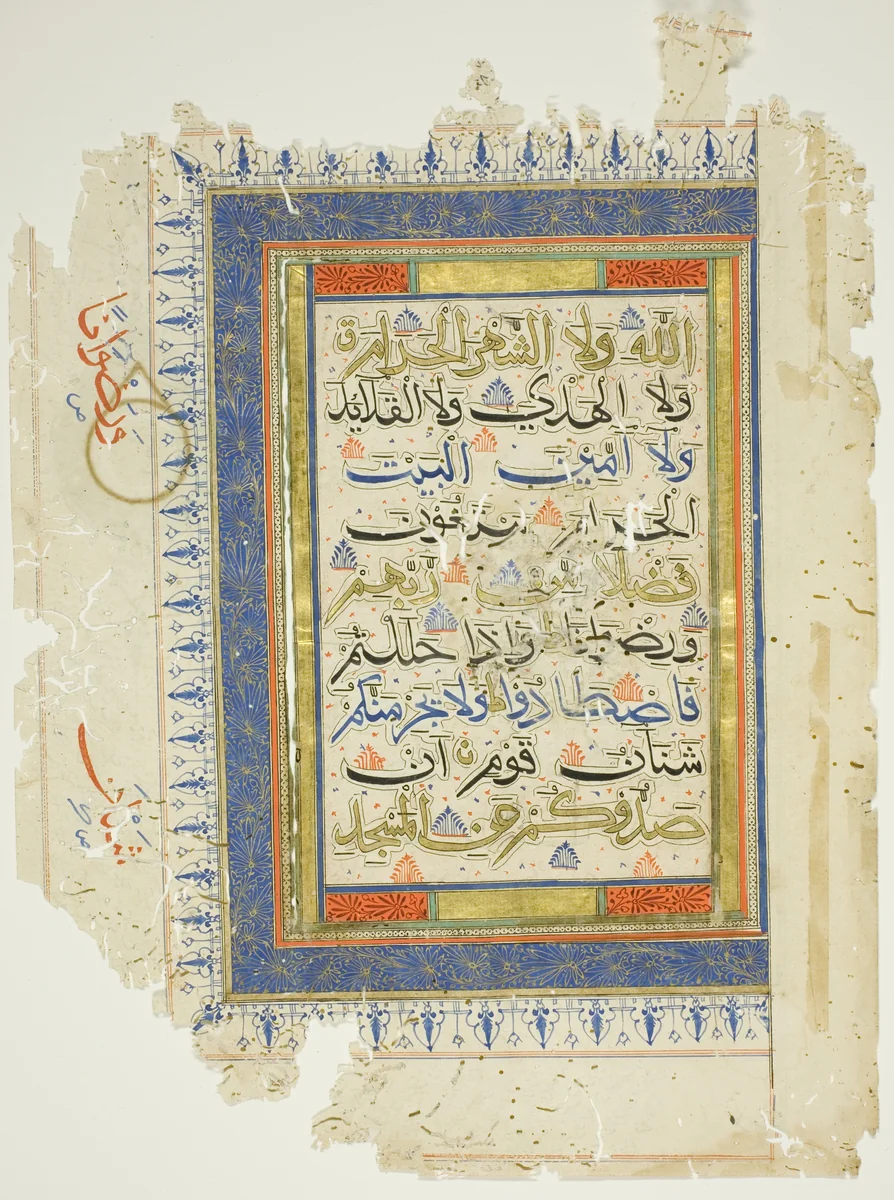 اللَّهِ وَلَا الشَّهْرَ الْحَرَامَ
وَلَا الْهَدْيَ وَلَا الْقَلَائِدَ
وَلَا آمِّينَ الْبَيْتَ
الْحَرَامَ يَبْتَغُونَ
فَضْلًا مِّن رَّبِّهِمْ
وَرِضْوَانًا وَإِذَا حَلَلْتُمْ
فَاصْطَادُوا وَلَا يَجْرِمَنَّكُمْ
شَنَآنُ قَوْمٍ أَن
صَدُّوكُمْ عَنِ الْمَسْجِدِ